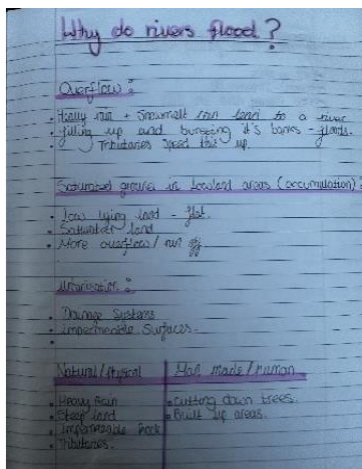 Why do rivers flood?
Overflow:
• Heavy rain + Snowmelt can lead to a river
• filling up and bursting it's banks - floods.
• Tributaries speed this up.
Saturated ground in Lowland areas (accumulation):
• Low lying land - flat.
• Saturated land
• More overflow/ run off
Urbanisation:
• Drainage Systems
• Impermeable Surfaces.
•
Natural/Physical
• Heavy Rain
• Steep land
• Impermeable Rock
• Tributaries.
Man made/Human
• Cutting down trees.
• Built up areas.